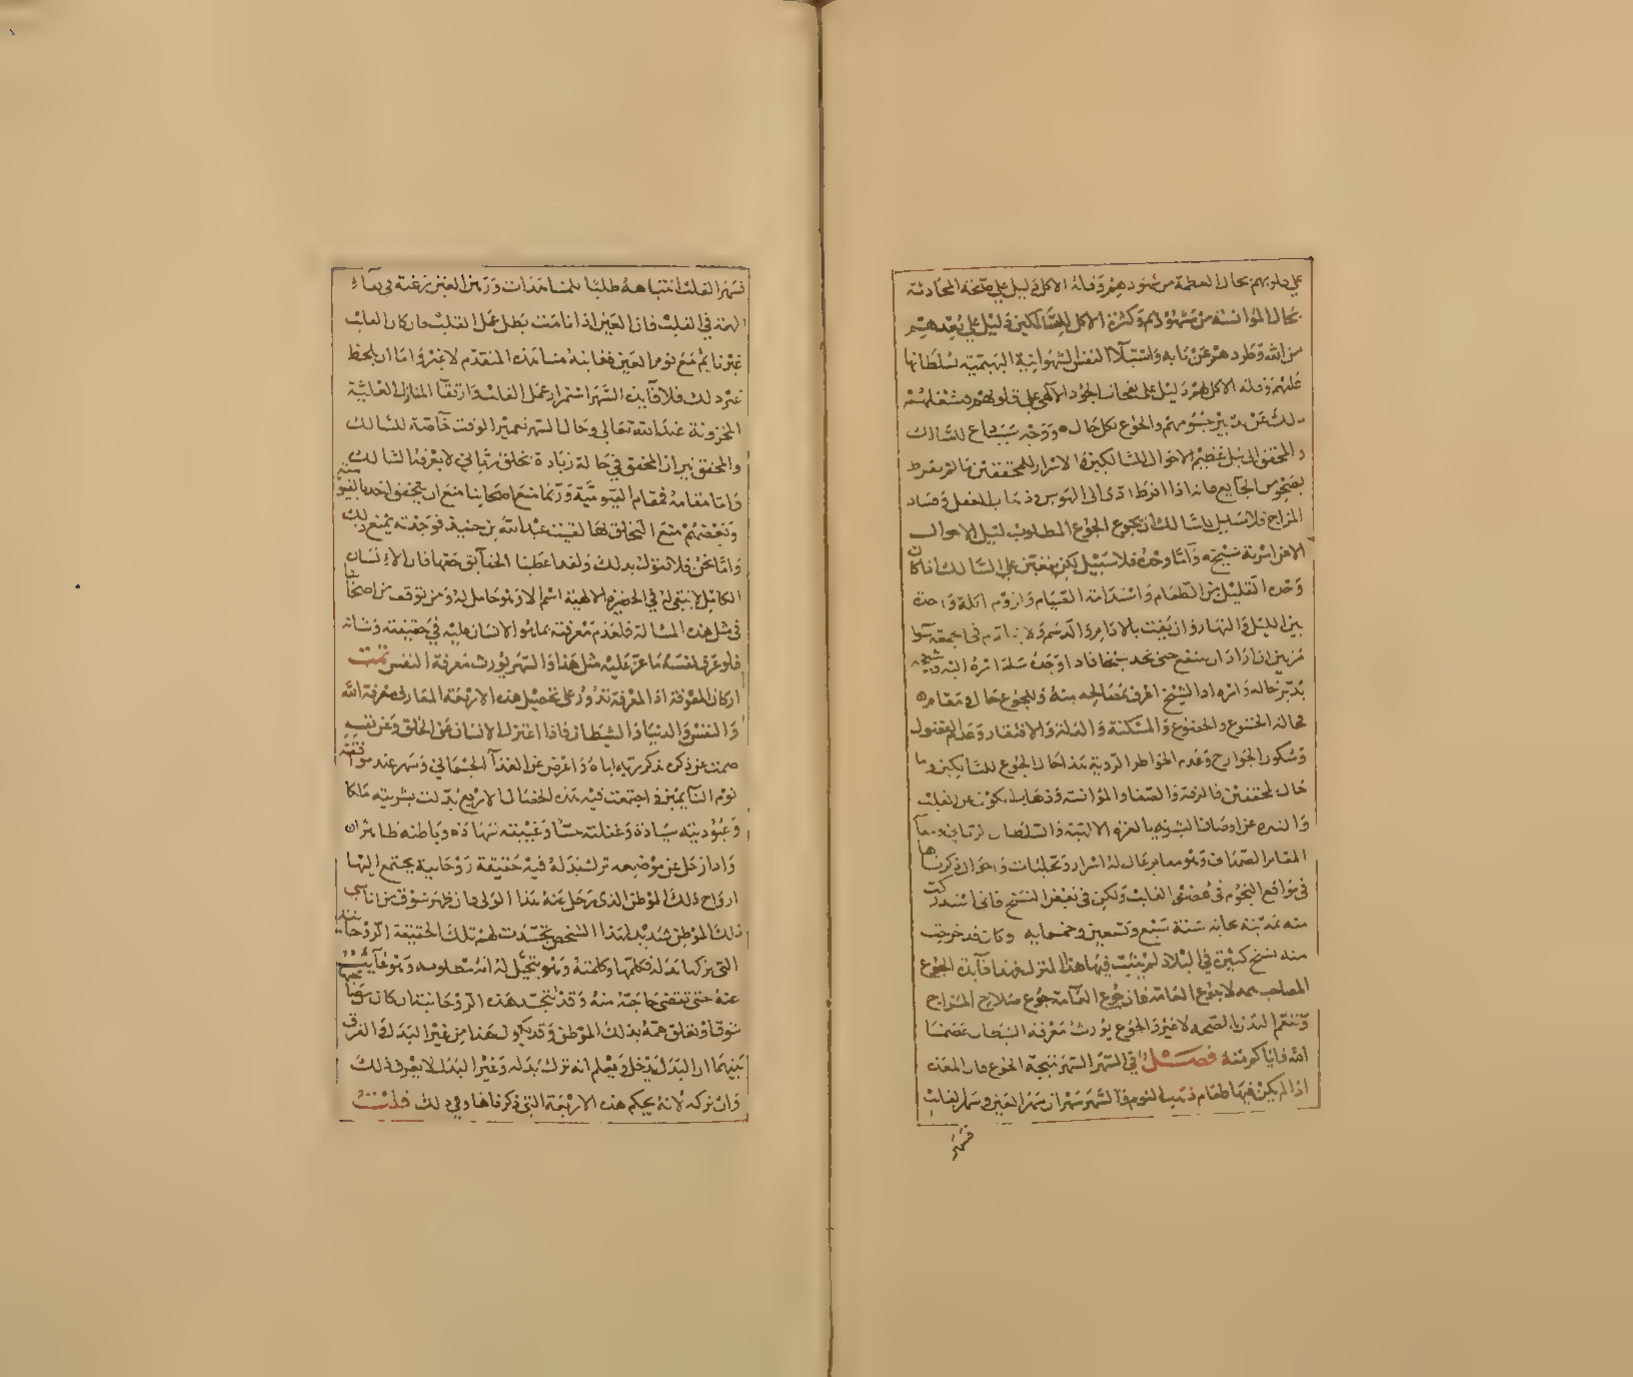 على قلوبهم بحال العظمة من شهودهم وقلة الاكل دليل على صحة المحادثة
بحال المؤانسة من مشهودهم وكثرة الاكل للسالكين دليل على بعدهم
من الله وطردهم عن بابه واستيلاء النفس الشهوانية البهيمية بسلطانها
عليهم وقلة الاكل لهم دليل على نفحات الجود الالهي على قلوبهم فيشغلهم
ذلك عن تدبير جسومهم والجوع بكل حال ووجه سبب داع للسالك
والمحقق الى نيل عظيم الاحوال للسالكين والاسرار للمحققين ما لم يفرط
بضجر من الجائع فانه اذا افرط ادى الى الهوس وذهاب العقل وفساد
المزاج فلا سبيل للسالك ان يجوع الجوع المطلوب لنيل الاحوال
الا عن امر شيخه واما وحده فلا سبيل لكن يتعين على السالك اذا كان
وحده التقليل من الطعام واستدامة الصيام ولزوم اكلة واحدة
بين الليل والنهار وان يغب بالادام والدسم ولا يأتدم في الجمعة سوى
مرتين ان اراد ان ينتفع حتى يجد شيخا فاذا وجده سلم امره اليه وشيخه
يدبر حاله وامره اذ الشيخ اعرف بمصالحه منه وللجوع حال ومقام
فحاله الخشوع والخضوع والمسكنة والذلة والافتقار وعدم الفضول
وسكون الجوارح وعدم الخواطر الردية هذا حال الجوع للسالكين واما
حال المحققين فالرقة والصفا والمؤانسة وذهاب الكون عن القلب
والتنزه عن اوصاف البشرية بالعزة الالهية والسلطان الرباني ومقامه
المقام الصمداني وهو مقام عال له اسرار وتجليات واحوال ذكرناها
في مواقع النجوم في عضو القلب ولكن في بعض النسخ فاني استدركت
منه بمدينة بجاية سنة سبع وتسعين وخمسماية وكان قد خرجت
منه نسخ كثيرة في البلاد لم يثبت فيها هذا المنزل فهذا فائدة الجوع
المصاحب للهمة لا جوع العامة فان جوع العامة جوع صلاح المزاج
وتنعم البدن بالصحة لا غير والجوع يورث معرفة الشيطان عصمنا
الله واياكم منه فصل في السهر السهر نتيجة الجوع فان المعدة
اذا لم يكن فيها طعام ذهب النوم والسهر سهران سهر العين وسهر القلب
فسهر
فسهر القلب انتباهه طلبا للمشاهدات وسهر العين رغبة في بقاء
الهمة في القلب فان العين اذا نامت بطل عمل القلب فان كان القلب
غير نائم مع نوم العين فغايته مشاهدة المتقدم لا غير واما ان يلحظ
غير ذلك فلا فائدة السهر استمرار عمل القلب وارتقا المنازل العلية
المخزونة عند الله تعالى وحال السهر تعمير الوقت خاصة للسالك
والمحقق غير ان المحقق في حالة زيادة تخلق رباني لا يعرفه السالك
واما مقامه فمقام القيومية وربما منع اصحابنا منع ان يتحقق احد بالقيومية
وبعضهم منع التخلق بها لقيت عبد الله بن جنيد فوجدته يمنع ذلك
واما نحن فلا نقول بذلك ولقد اعطتنا الحقائق ضدها فان الانسان
الكامل لا يبقى له في الحضرة الالهية اسم الا وهو حامل له ومن توقف من اصحابنا
في مثل هذه المسالة فلعدم معرفته بما هو الانسان عليه في حقيقته ونشاته
فلو عرف نفسه ما عز عليه مثل هذا والسهر يورث معرفة النفس تمت
اركان المعرفة اذ المعرفة تدور على تحصيل هذه الاربعة المعارف معرفة الله
والنفس والدنيا والشيطان فاذا اعتزل الانسان عن الخلق وعن نفسه
وصمت عن ذكره بذكر ربه اياه واعرض عن الغذا الجسماني وسهر عند موافقة
نوم النائمين واجتمعت فيه هذه الخصال الاربع بدلت بشريته ملكا
وعبوديته سيادة وعقله حسا وغيبته شهادة وباطنه ظاهرا
واذا رحل عن موضعه ترك بدله فيه حقيقة روحانية يجتمع اليها
ارواح ذلك الموطن الذي رحل عنه هذا الولي فان ظهر شوق من اناسي
ذلك الموطن شديد لهذا الشخص تجسدت لهم تلك الحقيقة الروحانية
التي تركها بدله فكلمها وكلمته وهو يتخيل له انه مطلوبه وهو غائب
عنه حتى يقضي حاجته منه وقد يتجسد هذه الروحانية ان كان من صاحبها
شوق او تعلق همة بذلك الموطن وقد يكون هذا من غير البدل والفرق
بينهما ان البدل يرحل ويعلم انه ترك بدله وغير البدل لا يعرف ذلك
وان تركه لانه لم يحكم هذه الاربعة التي ذكرناها وفي ذلك قلت